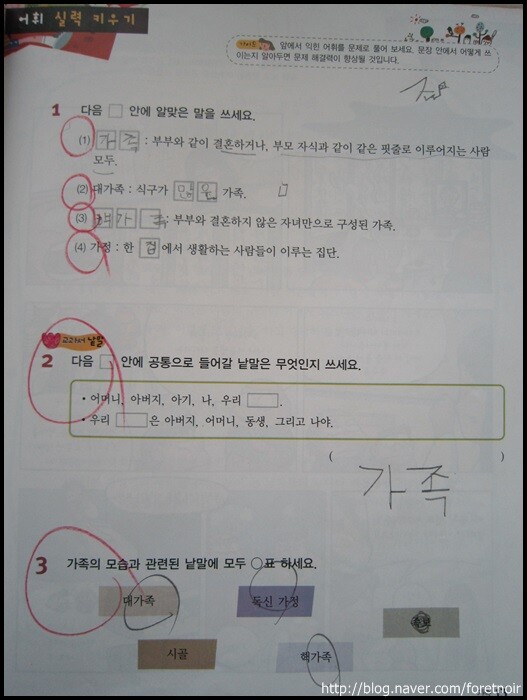 어휘 실력 키우기
앞에서 익힌 어휘를 문제로 풀어 보세요. 문장 안에서 어떻게 쓰
이는지 알아두면 문제 해결력이 향상될 것입니다.
1 다음 □ 안에 알맞은 말을 쓰세요.
(1) 가족 : 부부와 같이 결혼하거나, 부모 자식과 같이 같은 핏줄로 이루어지는 사람
모두.
(2) 대가족 : 식구가 많은 가족.
(3) 핵가족 : 부부와 결혼하지 않은 자녀만으로 구성된 가족.
(4) 가정 : 한 집에서 생활하는 사람들이 이루는 집단.
교과서 낱말
2 다음 □ 안에 공통으로 들어갈 낱말은 무엇인지 쓰세요.
• 어머니, 아버지, 아기, 나, 우리 □.
• 우리 □은 아버지, 어머니, 동생, 그리고 나야.
( 가족 )
3 가족의 모습과 관련된 낱말에 모두 ○표 하세요.
대가족 독신 가정
시골 핵가족
http://blog.naver.com/foretnoir